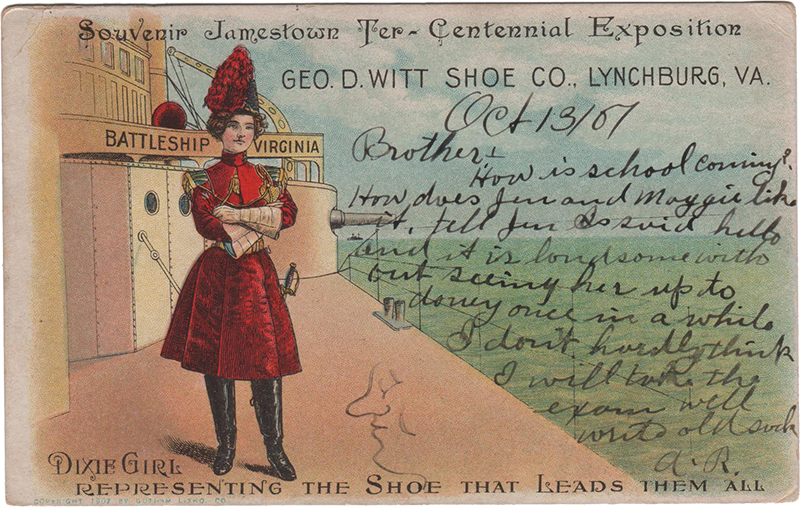 Souvenir Jamestown Ter-Centennial Exposition
GEO. D. WITT SHOE CO., LYNCHBURG, VA.
Oct 13/07
BATTLESHIP VIRGINIA
Brother:
How is school coming?
How does Jen and Maggie like
it, tell Jen I said hello
and it is londsome with
out seeing her up to
once in a while
I don't hardly think
I will take the
exam well
write old sock
A. R.
DIXIE GIRL
REPRESENTING THE SHOE THAT LEADS THEM ALL
COPYRIGHT 1907 BY GOTHAM LITHO. CO.